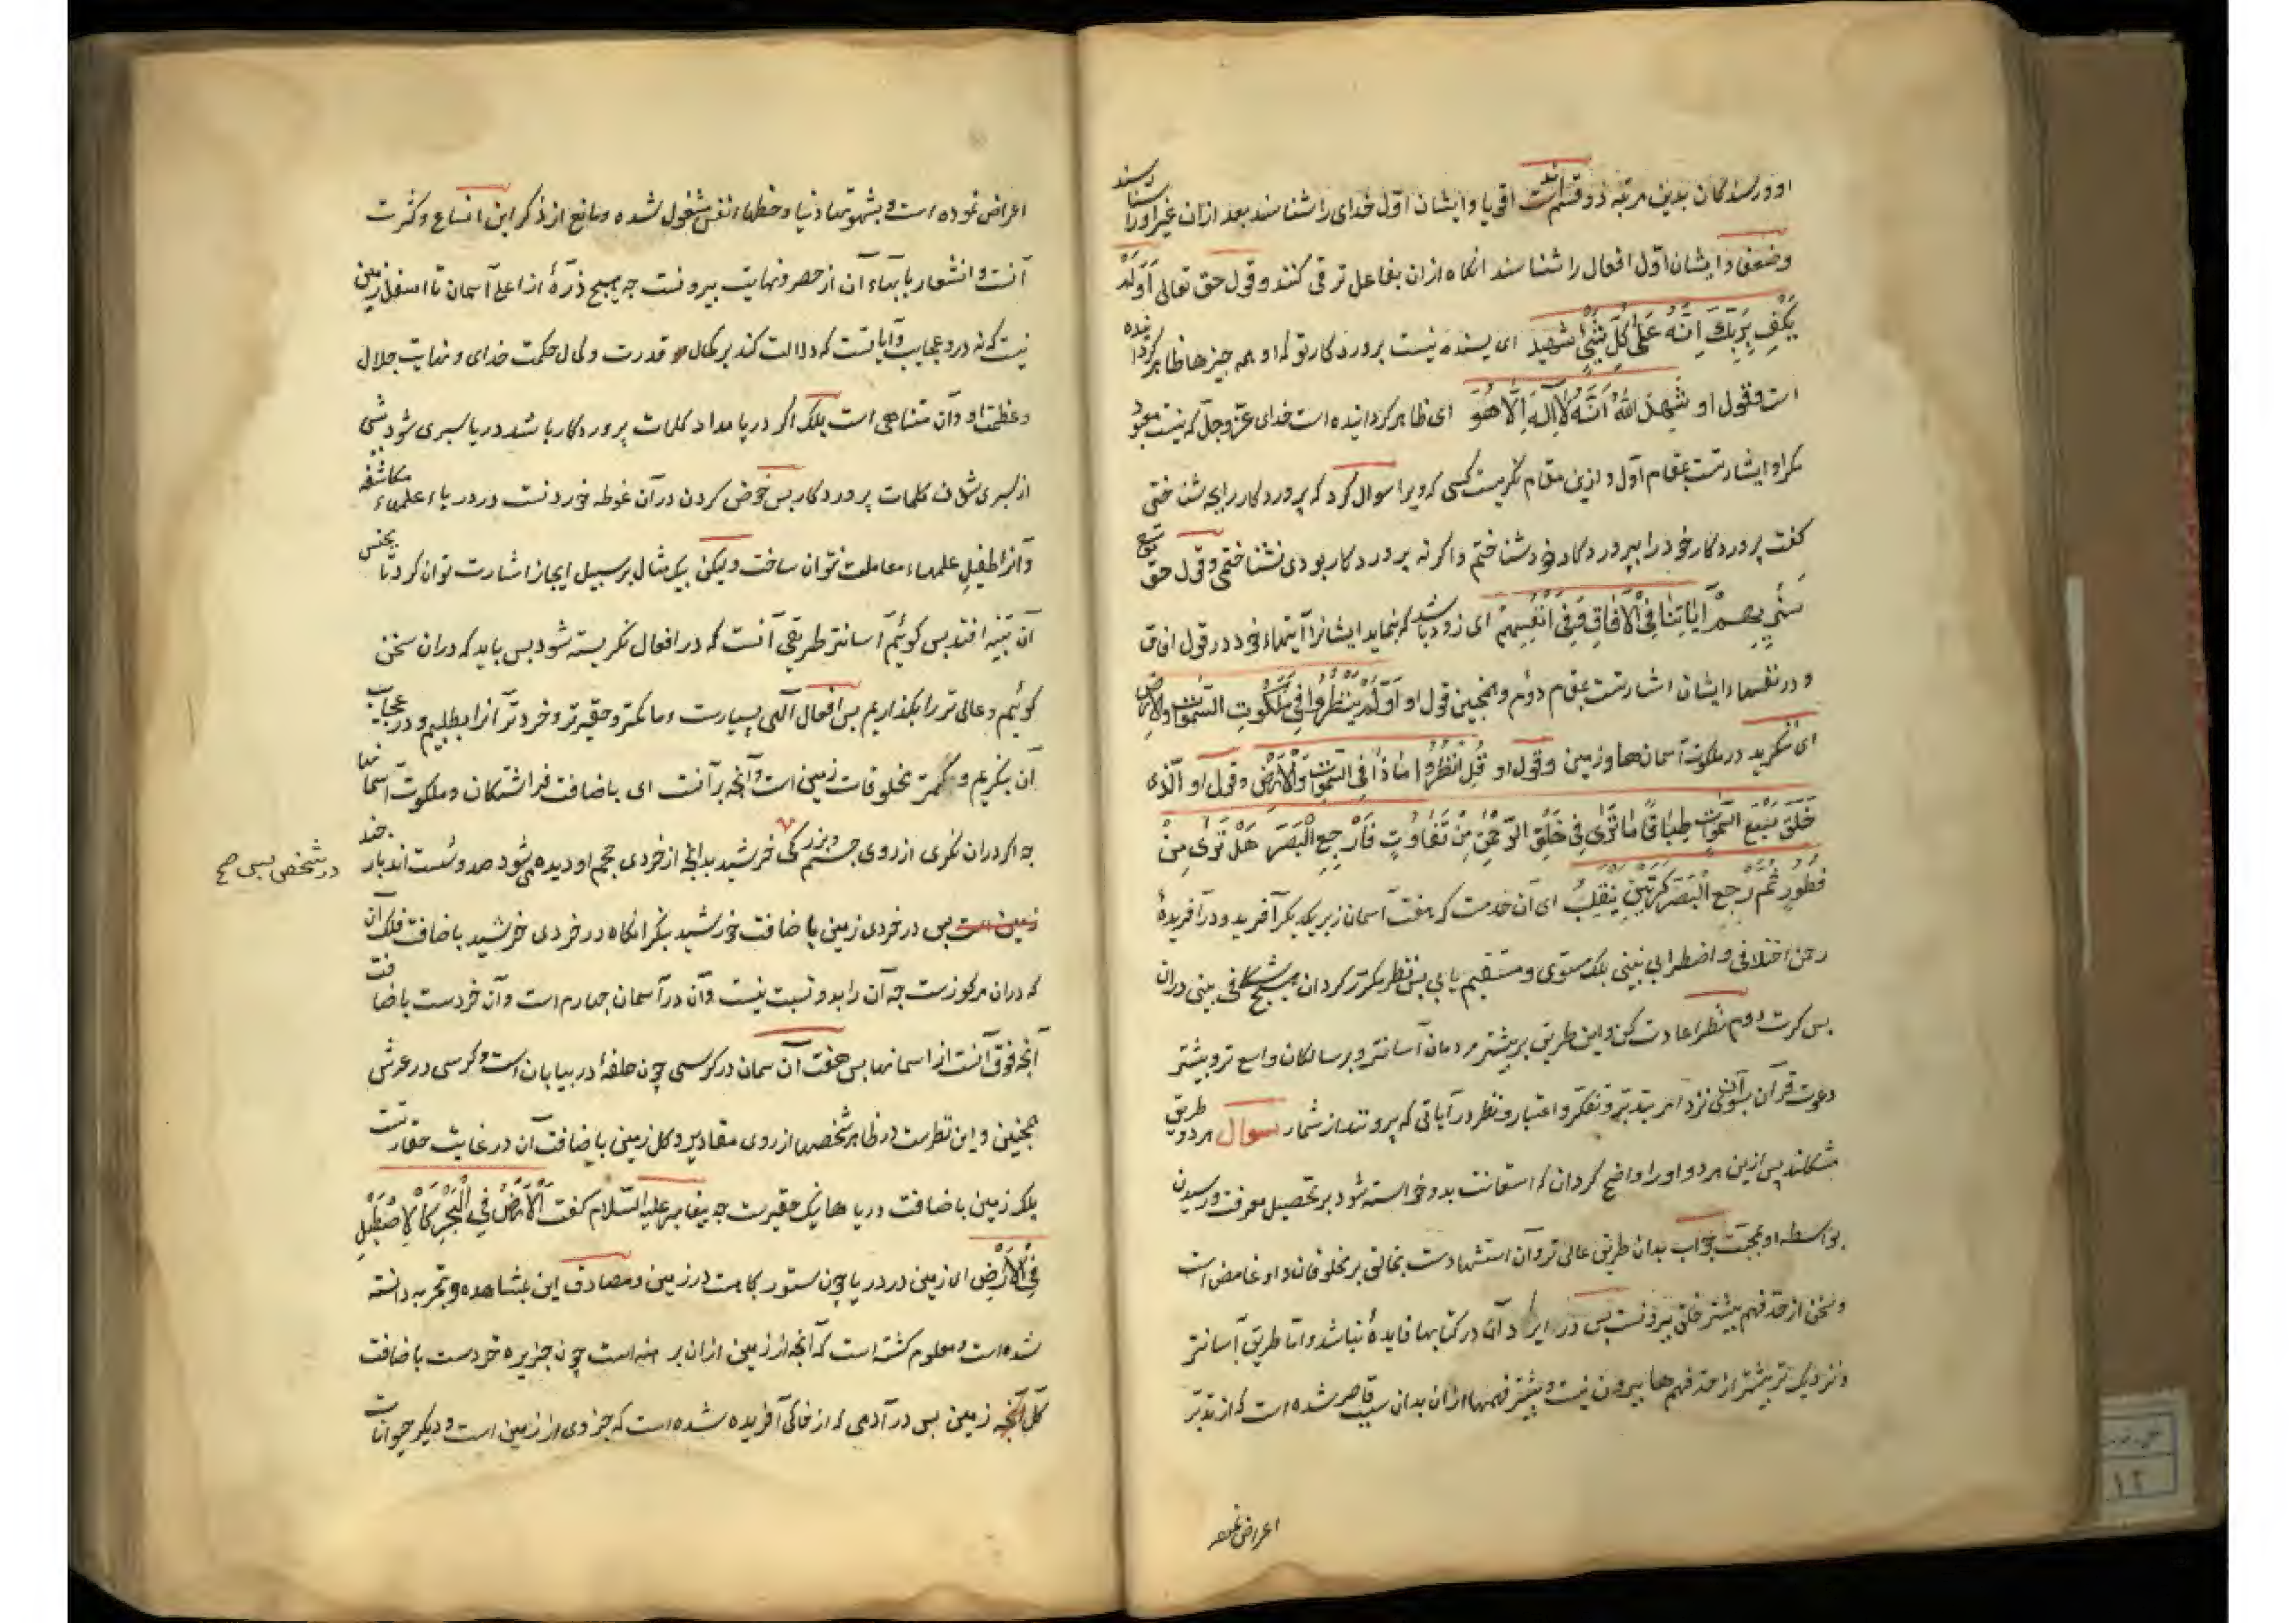 او و رسندکان بدین مرتبه ذو قسم است اقویا و ایشان اول خدای را شناسند بعد ازان غیر او را شناسند
و ضعفا و ایشان اول افعال را شناسند انکاه ازان بفاعل ترقی کنند و قول حق تعالی اَوَلَمْ
یَکْفِ بِرَبِّکَ اَنَّهُ عَلیٰ کُلِّ شَیْءٍ شَهِید ای بسنده نیست پروردکار تو که او همه چیزها ظاهر کرداننده
است و قول او شَهِدَ اللهُ اَنَّهُ لَا اِلٰهَ اِلَّا هُوَ ای ظاهر کرداینده است خدای عزّ وجلّ که نیست معبود
مکر او اشارتست بمقام اول و ازین مقام نکریست کسی که ویرا سوال کرد که پروردکار را بچه شناختی
کفت پروردکار خود را بپروردکار خود شناختم و اکر نه پروردکار بودی نشناختمی و قول حق تع
سَنُرِیهِمْ آیَاتِنَا فِی الْآفَاقِ وَفِی اَنْفُسِهِمْ ای زود باشد که بنماید ایشانرا آیتهاء خود در قول افاق
و در نفسهاء ایشان اشارتست بمقام دوم و همچنین قول او اَوَلَمْ یَنْظُرُوا فِی مَلَکُوتِ السَّمٰوَاتِ وَالْاَرْضِ
ای ننکرید در ملکوت آسمان‌ها و زمین و قول او قُلِ انْظُرُوا مَاذَا فِی السَّمٰوَاتِ وَالْاَرْضِ و قول او الَّذِی
خَلَقَ سَبْعَ السَّمٰوَاتِ طِبَاقًا مَا تَرٰی فِی خَلْقِ الرَّحْمٰنِ مِنْ تَفَاوُتٍ فَارْجِعِ الْبَصَرَ هَلْ تَرٰی مِنْ
فُطُورٍ ثُمَّ ارْجِعِ الْبَصَرَ کَرَّتَیْنِ یَنْقَلِبْ ای آن خدمت که هفت آسمان زبر یکدیکر آفرید و در آفریدهٔ
رحمن اختلافی و اضطرابی نبینی بلک مستوی و مستقیم یابی پس نظر مکرّر کردان هیچ شکافی بینی دران
بس کرت دوم نظر اعادت کن و این طریق بر بیشتر مردمان آسانتر و بر سالکان واسع تر و بیشتر
دعوت قرآن بسوی آنست نزد امر بتدبّر و تفکّر و اعتبار و نظر در آیاتی که بیرونند از شمار سوال هر دو طریق
مشکلند پس ازین هر دو او را واضح کردان که استعانت بدو خواسته شود بر تحصیل معرفت و رسیدن
بواسطه او بمحبّت جواب بدان طریق عالی‌تر و آن استشهادست بخالق بر مخلوقان و او غامض است
و سخن از حد فهم بیشتر خلق بیرونست بس در ایراد آن در کتابها فایدهٔ نباشد و اما طریق آسانتر
و نزدیک تر بیشتر از حد فهم‌ها بیرون نیست و بیشتر فهمها ازان بدان سبب قاصر شده است که از تدبّر
اعراض نموده
اعراض نموده است و بشهوتهاء دنیا و حظهاء نفس مشغول شده و مانع از ذکر این اتساع و کثرت
آنست و انشعار بابهاء آن از حصر و نهایت بیرونست چه هیچ ذرّهٔ از اعلی آسمان تا اسفل زمین
نیست که نه درو عجایب و آیاتست که دلالت کند بر کمال قدرت و کمال حکمت خدای و نهایت جلال
و عظمت او و آن متناهی است بلک اکر دریا مداد کلمات پروردکار باشد دریا سبری شود پیش
از سبری شدن کلمات پروردکار بس خوض کردن در آن غوطه خوردنست در دریاء علمهاء مکاشفه
و آنرا طفیل علمهاء معاملت نتوان ساخت ولیکن بیک مثال بر سبیل ایجاز اشارت توان کرد تا بجنس
آن تنبیه افتد بس کوئیم آسانتر طریقی آنست که در افعال نکریسته شود بس باید که دران سخن
کوئیم و عالی تر را بکذاریم بس افعال آلهی بسیارست و ما کمتر و حقیرتر و خردتر آنرا بطلبیم و در عجایب
آن بنکریم و کمتر مخلوقات زمین است و آنچه بر آنست ای باضافت فراشتکان و ملکوت آسمانها
چه اکر دران نکری از روی جسم و بزرکی خرشید بدانچه از خردی حجم او دیده می‌شود صد و شست اند بار چند
زمین است بس در خردی زمین باضافت خورشید بنکر انکاه در خردی خرشید باضافت فلک آن
که دران مرکوزست چه آن را بدو نسبت نیست و آن در آسمان چهارم است و آن خردست باضافت
آنچه فوق آنست از اسمانها بس هفت آن سمان در کرسی چون حلقهٔ در بیابان است و کرسی در عرش
همچنین و این نظرست در ظاهر شخصها از روی مقادیر و کل زمین باضافت آن در غایت حقارتست
بلک زمین باضافت دریاها نیک حقیرت چه پیغامبر علیه السّلام کفت اَلْاَرْضُ فِی الْبَحْرِ کَالْاِصْطَبْلِ
فِی الْاَرْضِ ای زمین در دریا چون ستورکاهست در زمین و مصادق این بمشاهده و تجربه دانسته
شده است و معلوم کشته است که آنچه از زمین ازان برهنه است چون جزیره خردست باضافت
کل زمین بس در آدمی که از خاکی آفریده شده است که جزوی از زمین است و دیکر حیوانات
در شخص بس صح
۱۲